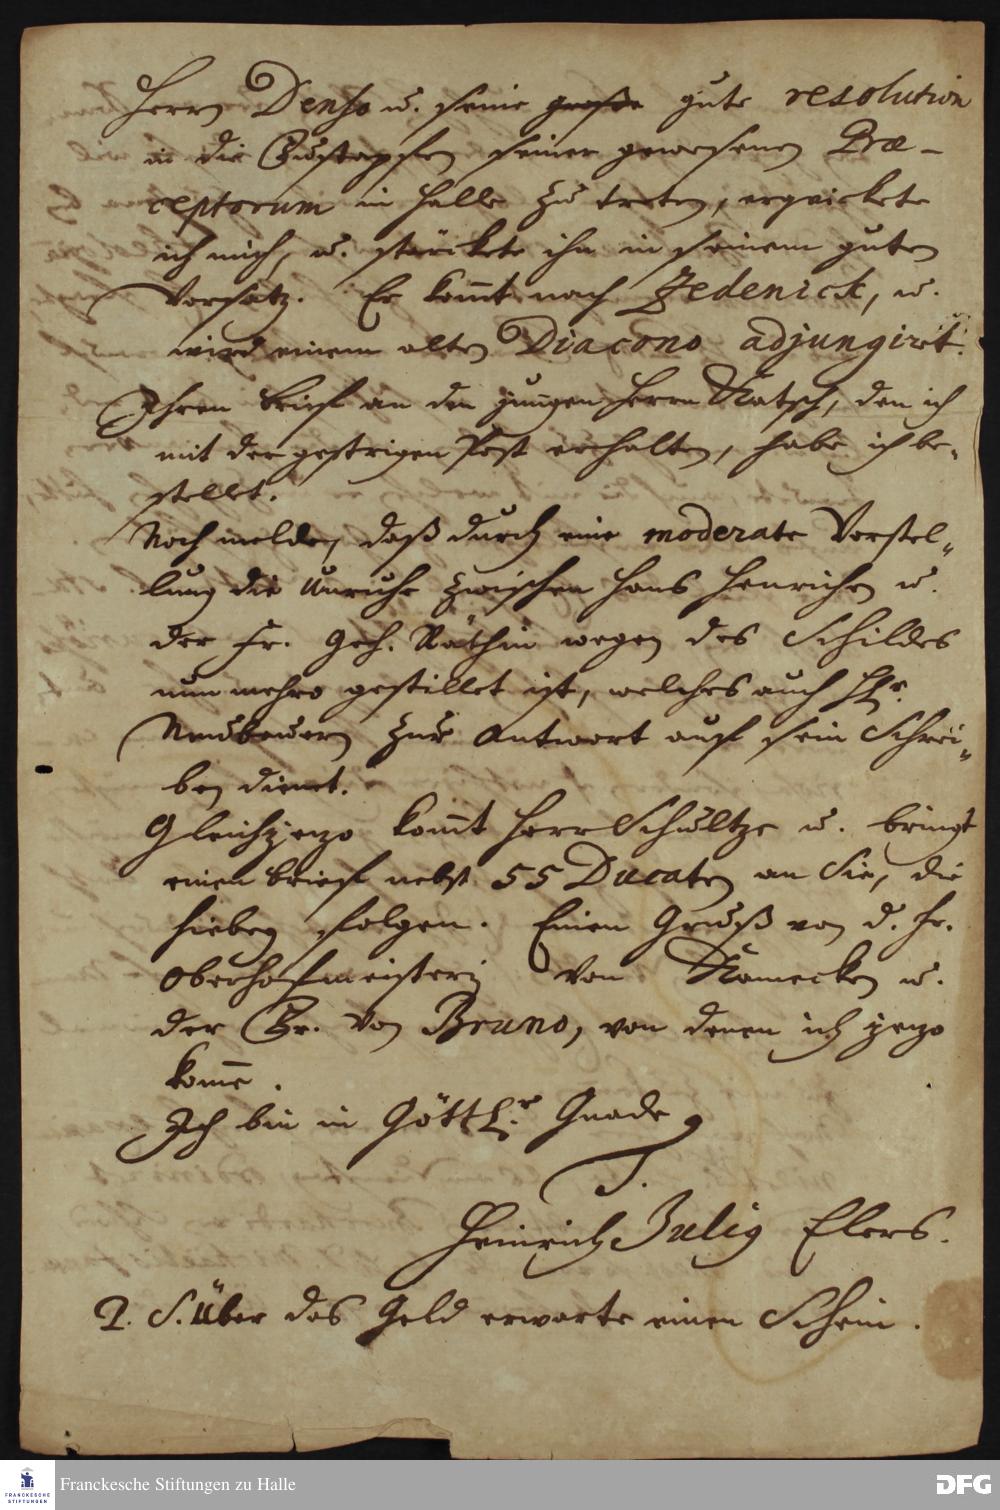 Herrn Denso u. seine große gute resolution
in die Fußstapffen seiner gewesenen Præ-
ceptorum in Halle zu treten, erqvickete
ich mich, u. stärckete ihn in seinem guten
Vorsatz. Er komt nach Zedenick, u.
wird einem alten Diacono adjungirt.
Ihren brief an den jungen Herrn Natsch, den ich
mit der gestrigen Post erhalten, habe ich be-
stellt.
Noch melde, daß durch eine moderate Vorstel-
lung die Unruhe zwischen Hans Henrichen u.
der Fr. Geh. Räthin wegen des Schildes
nunmehro gestillet ist, welches auch H.
Neubauern zur Antwort auf sein Schrei-
ben dienet.
Gleich jezo komt Herr Schultze u. bringt
einen brief nebst 55 Ducaten an Sie, die
hiebey folgen. Einen Gruß von d. Fr.
Oberhofmeisterin von Kamecken u.
der Fr. von Bruno, von denen ich jezo
komme.
Ich bin in Göttl.r Gnade
T.
Heinrich Julig Elers.
P. S. Über das Geld erwarte einen Schein.
Franckesche Stiftungen zu Halle
FRANCKESCHE
STIFTUNGEN
DFG